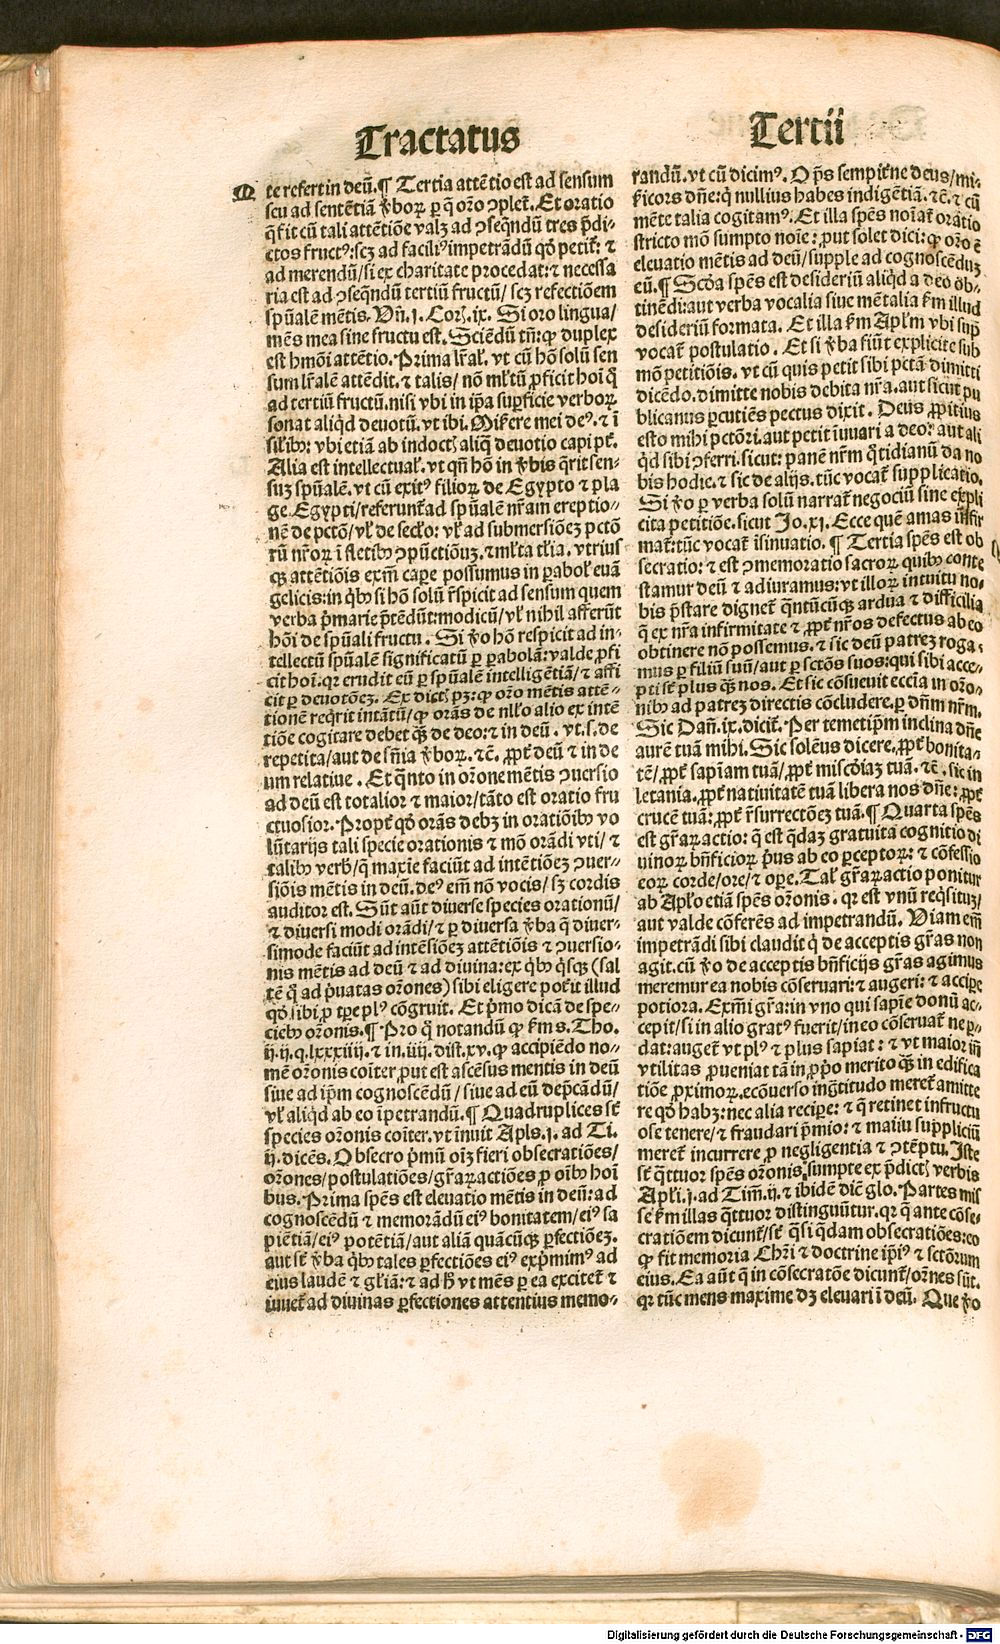 Tractatus
M te refert in deū. ¶ Tertia attētio est ad sensum
seu ad sentētiā ꝟboꝝ ꝑ ꝗ oro ꝯplet̄. Et oratio
q̄ fit cū tali attētiōe valꝫ ad ꝯseqn̄dū tres p̄di-
ctos fructꝰ: scꝫ ad faciliꝰ impetrādū qd̓ petit̄: ⁊
ad merendū/ si ex charitate procedat: ⁊ necessa
ria est ad ꝯseqn̄dū tertiū fructū/ scꝫ refectiōem
spūalē mētis. Vn̄. j. Coꝝ. ix. Si oro lingua/
mēs mea sine fructu est. Sciēdū tn̄: ꝙ duplex
est hmōi attētio. Prima lr̄al̓. vt cū hō solū sen
sum lr̄alē attēdit. ⁊ talis/ nō ml̓tū ꝓficit hoī q̊
ad tertiū fructū. nisi vbi in ip̄a suꝑficie verboꝝ
sonat aliqd̓ deuotū. vt ibi. Miserere mei deꝰ. ⁊ ī
sil̓ibꝰ: vbi etiā ab indoctꝭ aliq̄ deuotio capi pt̄.
Alia est intellectual̓. vt qn̄ hō in ꝟbis q̄rit sen-
suꝫ spūalē. vt cū exitꝰ filioꝝ de Egypto ⁊ pla
ge Egypti/ referunt̄ ad spūalē nr̄am ereptio-
nē de pctō/ vl̓ de seclo: vl̓ ad submersiōeꝫ pctō
rū nr̄oꝝ ī fletibꝰ ꝯpūctiōuꝫ. ⁊ ml̓ta tl̓ia. vtrius
qꝫ attētiōis exm̄ cape possumus in ꝑabol̓ euā
gelicis: in qb̓ꝰ si hō solū r̄spicit ad sensum quem
verba p̄marie p̄tēdūt: modicū/ vl̓ nihil afferūt
hōi de spūali fructu. Si ꝟo hō respicit ad in-
tellectū spūalē significatū ꝑ ꝑabolā: valde ꝓfi
cit hoī: qꝛ erudit eū ꝑ spūalē intelligētiā/ ⁊ affi
cit ꝑ deuotōeꝫ. Ex dictꝭ pꝫ: ꝙ oro mētis attē-
tionē reqrit intātū/ ꝙ orās de nll̓o alio ex intē
tiōe cogitare debet qꝫ de deo: ⁊ in deū. vt. s. de
repetita/ aut de sn̄ia ꝟboꝝ. ⁊c̄. ꝓpt̄ deū ⁊ in de
um relatiue. Et qn̄to in orōne mētis ꝯuersio
ad deū est totalior ⁊ maior/ tāto est oratio fru
ctuosior. Propt̄ qd̓ orās debꝫ in oratiōibꝰ vo
lūtarijs tali specie orationis ⁊ mō orādi vti/ ⁊
talibꝰ verbꝭ/ q̄ maxīe faciūt ad intētiōeꝫ ꝯuer-
siōis mētis in deū. deꝰ em̄ nō vocis/ sꝫ cordis
auditor est. Sūt aūt diuerse species orationū/
⁊ diuersi modi orādi/ ⁊ ꝑ diuersa ꝟba q̄ diuer-
simode faciūt ad intēsiōeꝫ attētiōis ⁊ ꝯuersio-
nis mētis ad deū ⁊ ad diuina: ex qb̓ꝰ qsqꝫ (sal
tē q̊ ad p̄uatas orōnes) sibi eligere pot̄it illud
qd̓ sibi ꝓ tꝑe plꝰ cōgruit. Et p̄mo dicā de spe-
ciebꝰ orōnis. ¶ Pro q̊ notandū ꝙ km̄ s. Tho.
ij. ij. q. lxxxiiij. ⁊ in. iiij. dist. xv. ꝙ accipiēdo no-
mē orōnis coīter/ ꝓut est ascēsus mentis in deū
siue ad ip̄m cognoscēdū/ siue ad eū dep̄cādū/
vl̓ aliqd̓ ab eo īpetrandū. ¶ Quadruplices st̄
species orōnis coīter. vt īnuit Apls. j. ad Ti.
ij. dicēs. Obsecro p̄mū oīꝫ fieri obsecratiōes/
orōnes/ postulatiōes/ gr̄aꝝ actiōes ꝓ oībꝰ hoī
bus. Prima spēs est eleuatio mētis in deū: ad
cognoscēdū ⁊ memorādū eiꝰ bonitatem/ eiꝰ sa
piētiā/ eiꝰ potētiā/ aut aliā quācūqꝫ ꝑfectiōeꝫ.
aut st̄ ꝟba qb̓ꝰ tales ꝑfectiōes eiꝰ exp̄mimꝰ ad
eius laudē ⁊ gl̓iā: ⁊ ad hͦ vt mēs ꝑ ea excitet̄ ⁊
iuuet̄ ad diuinas ꝑfectiones attentius memo-
Tertii
randū. vt cū dicimꝰ. O p̄s sempit̄ne deus/ mi-
s̄icors dn̄e: q̊ nullius habes indigētiā. ⁊c̄. ⁊ cū
mēte talia cogitamꝰ. Et illa spēs noīat̄ oratio
stricto mō sumpto noīe: ꝓut solet dici: ꝙ orō ē
eleuatio mētis ad deū/ supple ad cognoscēduꝫ
eū. ¶ Scd̓a spēs est desideriū aliqd̓ a deo ob-
tinēdi: aut verba vocalia siue mētalia km̄ illud
desideriū formata. Et illa km̄ Apl̓m vbi sup̄
vocat̄ postulatio. Et si ꝟba fiūt explicite sub
mō petitiōis. vt cū quis petit sibi pctā dimitti
dicēdo. dimitte nobis debita nr̄a. aut sicut pu
blicanus ꝑcutiēs pectus dixit. Deus ꝓpitius
esto mihi pctōri. aut petit iuuari a deo: aut ali
qd̓ sibi ꝯferri. sicut: panē nr̄m q̊tidianū da no
bis hodie. ⁊ sic de alijs. tūc vocat̄ supplicatio.
Si ꝟo ꝑ verba solū narrat̄ negociū sine expli
cita petitiōe. sicut Jo. xj. Ecce quē amas īfir
mat̄: tūc vocat̄ īsinuatio. ¶ Tertia spēs est ob
secratio: ⁊ est ꝯmemoratio sacroꝝ quibꝰ conte
stamur deū ⁊ adiuramus: vt illoꝝ intuitu no-
bis p̄stare dignet̄ qn̄tūcūqꝫ ardua ⁊ difficilia
q̄ ex nr̄a infirmitate ⁊ ꝓpt̄ nr̄os defectus ab eo
obtinere nō possemus. ⁊ sic deū patreꝫ roga-
mus ꝑ filiū suū/ aut ꝑ sctōs suos: qui sibi acce-
pti st̄ plus qꝫ nos. Et sic cōsueuit eccl̓ia in orō-
nibꝰ ad patreꝫ directis cōcludere. ꝑ dn̄m nr̄m.
Sic Dan̄. ix. dicit̄. Per temetip̄m inclina dn̄e
aurē tuā mihi. Sic solēus dicere. ꝓpt̄ bonita-
tē/ ꝓpt̄ sapīam tuā/ ꝓpt̄ miscd̓iaꝫ tuā. ⁊c̄. sic in
letania. ꝓpt̄ natiuitatē tuā libera nos dn̄e: ꝓpt̄
crucē tuā: ꝓpt̄ r̄surrectōeꝫ tuā. ¶ Quarta spēs
est gr̄aꝝ actio: q̄ est qdaꝫ gratuita cognitio di
uinoꝝ bn̄ficioꝝ p̄us ab eo ꝑceptoꝝ: ⁊ cōfessio
eoꝝ corde/ ore/ ⁊ oꝑe. Tal̓ gr̄aꝝ actio ponitur
ab Apl̓o etiā spēs orōnis. qꝛ est vnū reqsituꝫ/
aut valde cōferēs ad impetrandū. Viam em̄
impetrādi sibi claudit q̊ de acceptis gr̄as non
agit. cū ꝟo de acceptis bn̄ficijs gr̄as agimus
meremur ea nobis cōseruari: ⁊ augeri: ⁊ acciꝑe
potiora. Exm̄i gr̄a: in vno qui sapīe donū ac-
cepit/ si in alio gratꝰ fuerit/ in eo cōseruat̄ ne ꝑ-
dat: auget̄ vt plꝰ ⁊ plus sapiat: ⁊ vt maior īn
vtilitas ꝓueniat tā in ꝓp̄o merito qꝫ in edifica
tiōe ꝓximoꝝ. ecōuerso ingr̄titudo meret̄ amitte
re qd̓ habꝫ: nec alia reciꝑe: ⁊ q̄ retinet infructu
ose tenere/ ⁊ fraudari p̄mio: ⁊ maius suppliciū
meret̄ incurrere ꝓ negligentia ⁊ ꝯtēptu. Iste
st̄ q̊ttuor spēs orōnis sumpte ex p̄dictꝭ verbis
Apl̓i. j. ad Tim̄. ij. ⁊ ibidē diē glo. Partes mis
se km̄ illas q̊ttuor distinguūtur. qꝛ q̄ ante cōse-
cratiōem dicunt̄/ st̄ qsi q̄dam obsecratiōes: eo
ꝙ fit memoria Chr̄i ⁊ doctrine ip̄iꝰ ⁊ sctōrum
eius. Ea aūt q̄ in cōsecratōe dicunt̄/ orōnes sūt.
qꝛ tūc mens maxime dꝫ eleuari ī deū. Que ꝟo
Digitalisierung gefördert durch die Deutsche Forschungsgemeinschaft - DFG